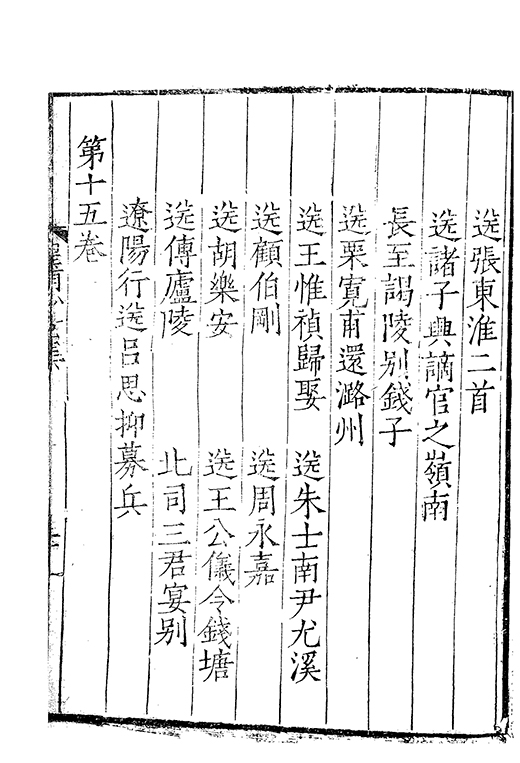 送張東淮二首
送諸子興謫官之嶺南
長至謁陵别錢子
送栗寬甫還潞州
送王惟禎歸娶　送朱士南尹尤溪
送顧伯剛　送周永嘉
送胡樂安　送王公儀令錢塘
送傅廬陵　北司三君宴别
遼陽行送呂思抑募兵
第十五卷